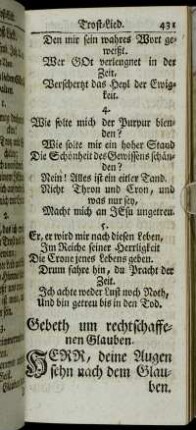 Trost-Lied. 431
Den mir sein wahres Wort ge-
weißt.
Wer GOtt verleugnet in der
Zeit.
Verschertzt das Heyl der Ewig-
keit.
4.
Wie solte mich der Purpur blen-
den?
Wie solte mir ein hoher Stand
Die Schönheit des Gewissens schän-
den?
Nein! Alles ist ein eitler Tand.
Nicht Thron und Cron, und
was nur sey,
Macht mich an JEsu ungetreu.
5.
Er, er wird mir nach diesen Leben,
Im Reiche seiner Herrligkeit
Die Crone jenes Lebens geben.
Drum fahre hin, du Pracht der
Zeit.
Ich achte weder Lust noch Noth,
Und bin getreu bis in den Tod.
Gebeth um rechtschaffe-
nen Glauben.
HERR, deine Augen
sehn nach dem Glau-
ben.